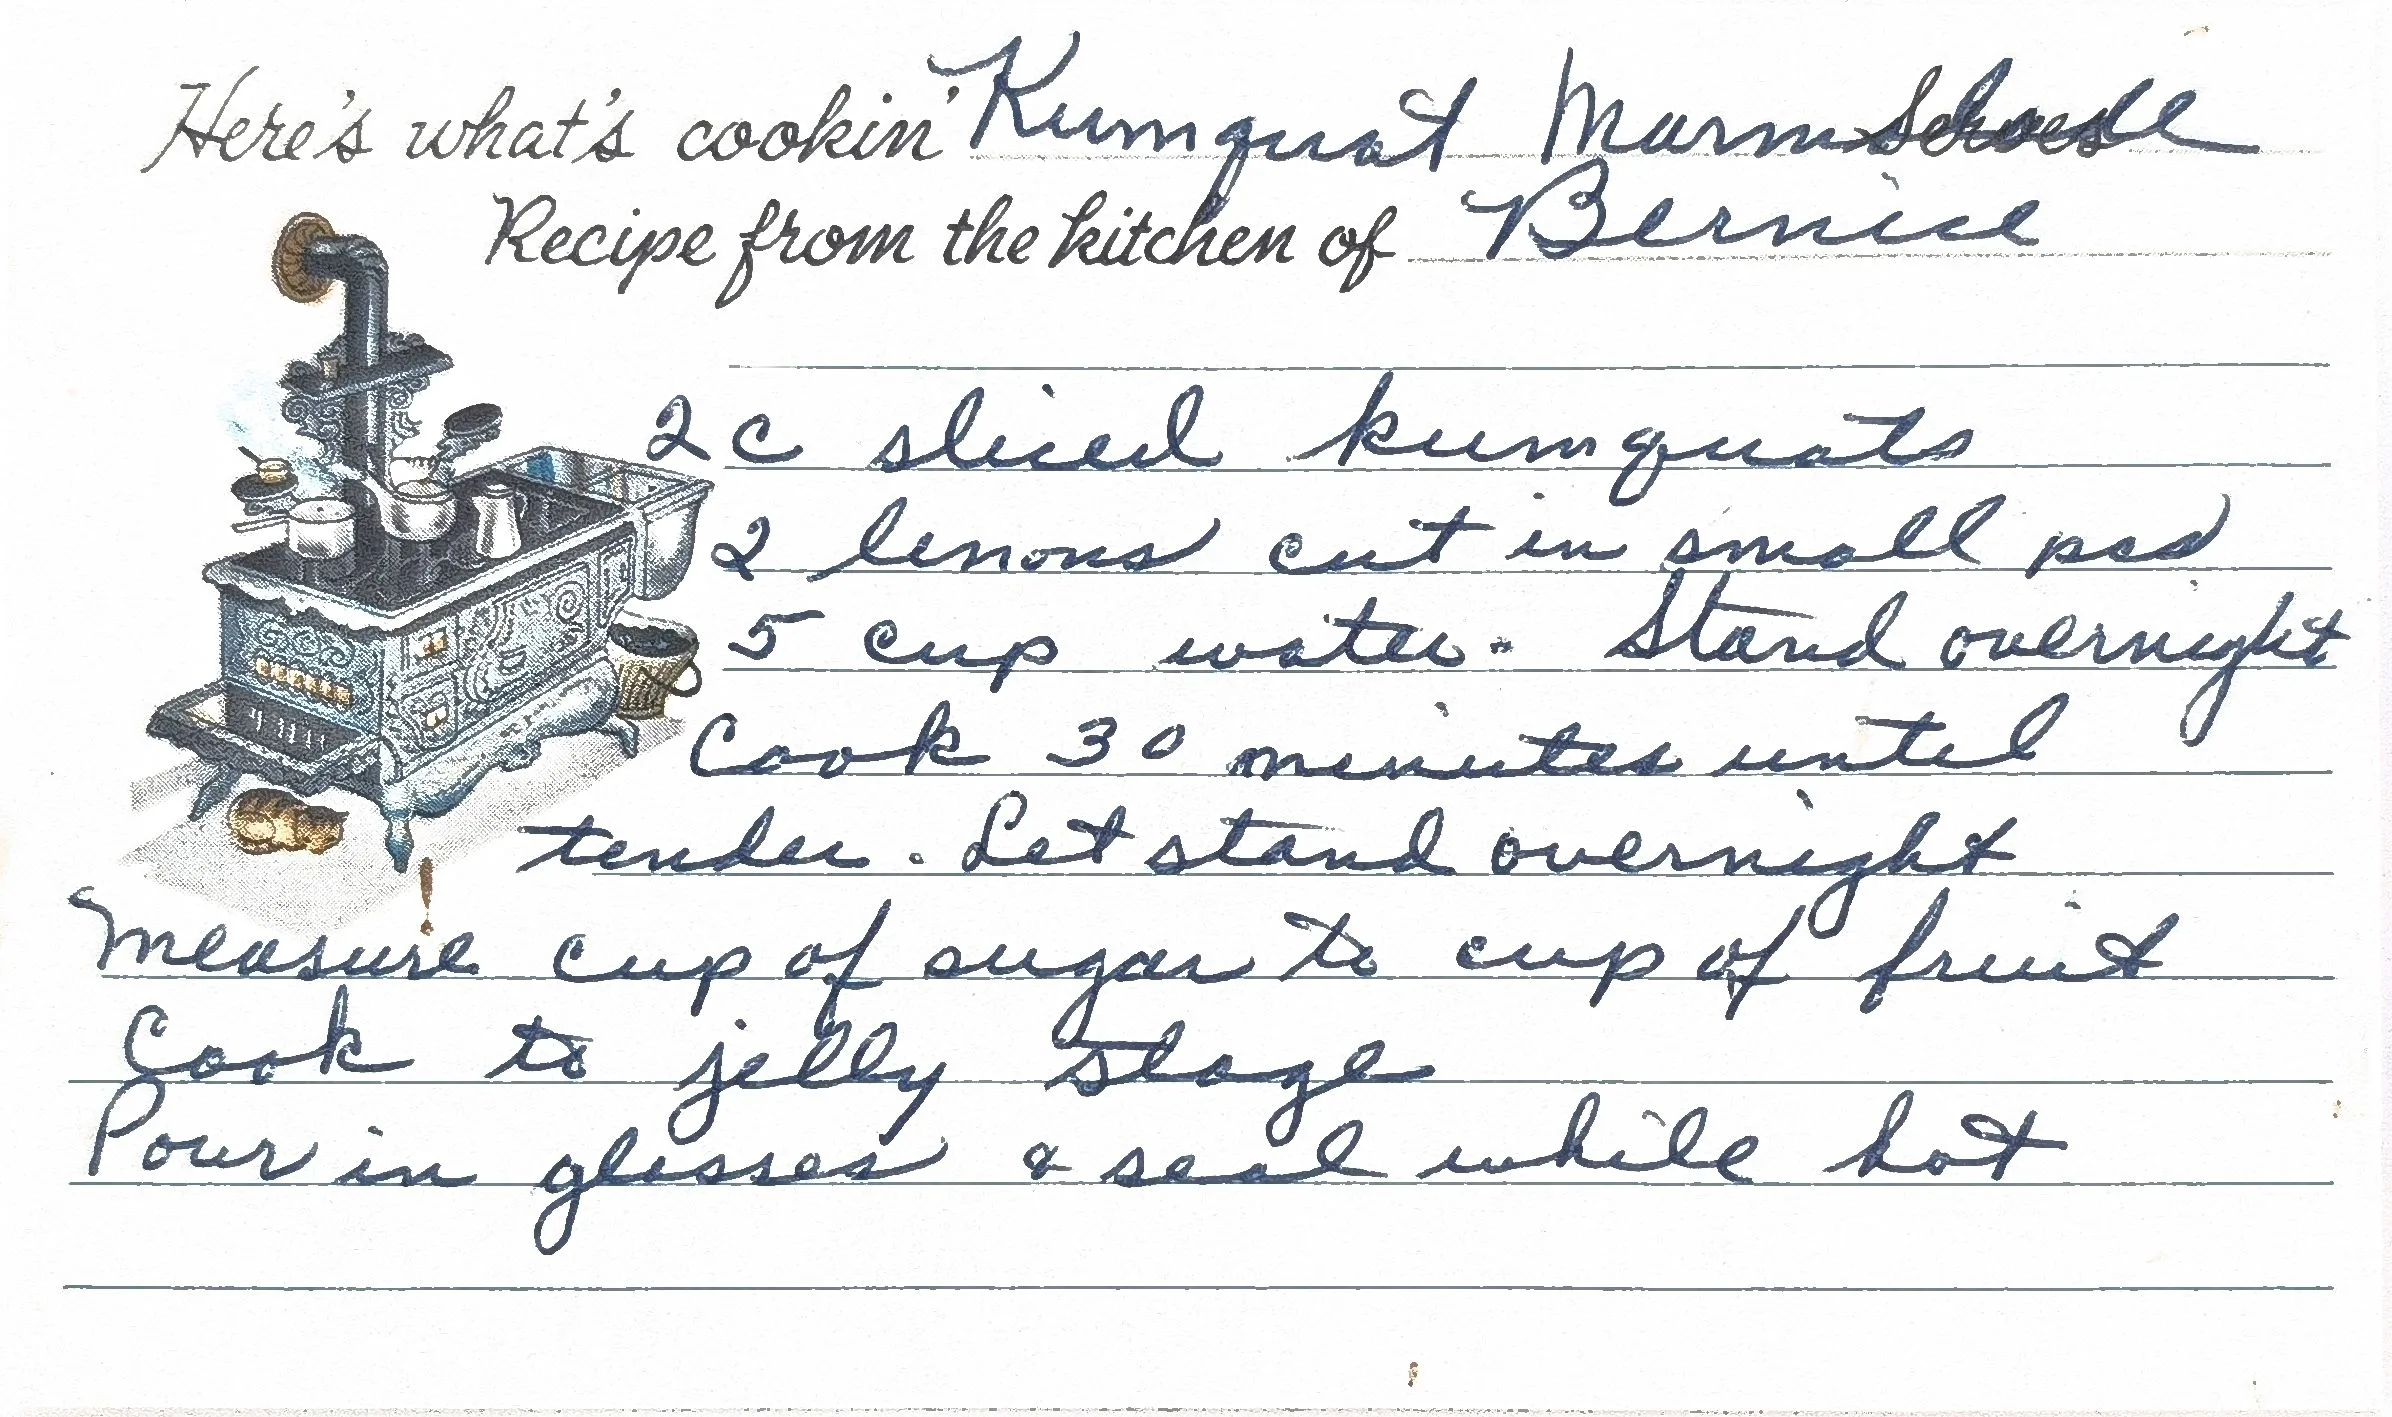 Here's what's cookin' Kumquat Marmalade Serves
Recipe from the kitchen of Bernice
2 c sliced kumquats
2 lemons cut in small pcs
5 cup water. Stand overnight
Cook 30 minutes until
tender. Let stand overnight
Measure cup of sugar to cup of fruit
Cook to jelly stage
Pour in glasses & seal while hot